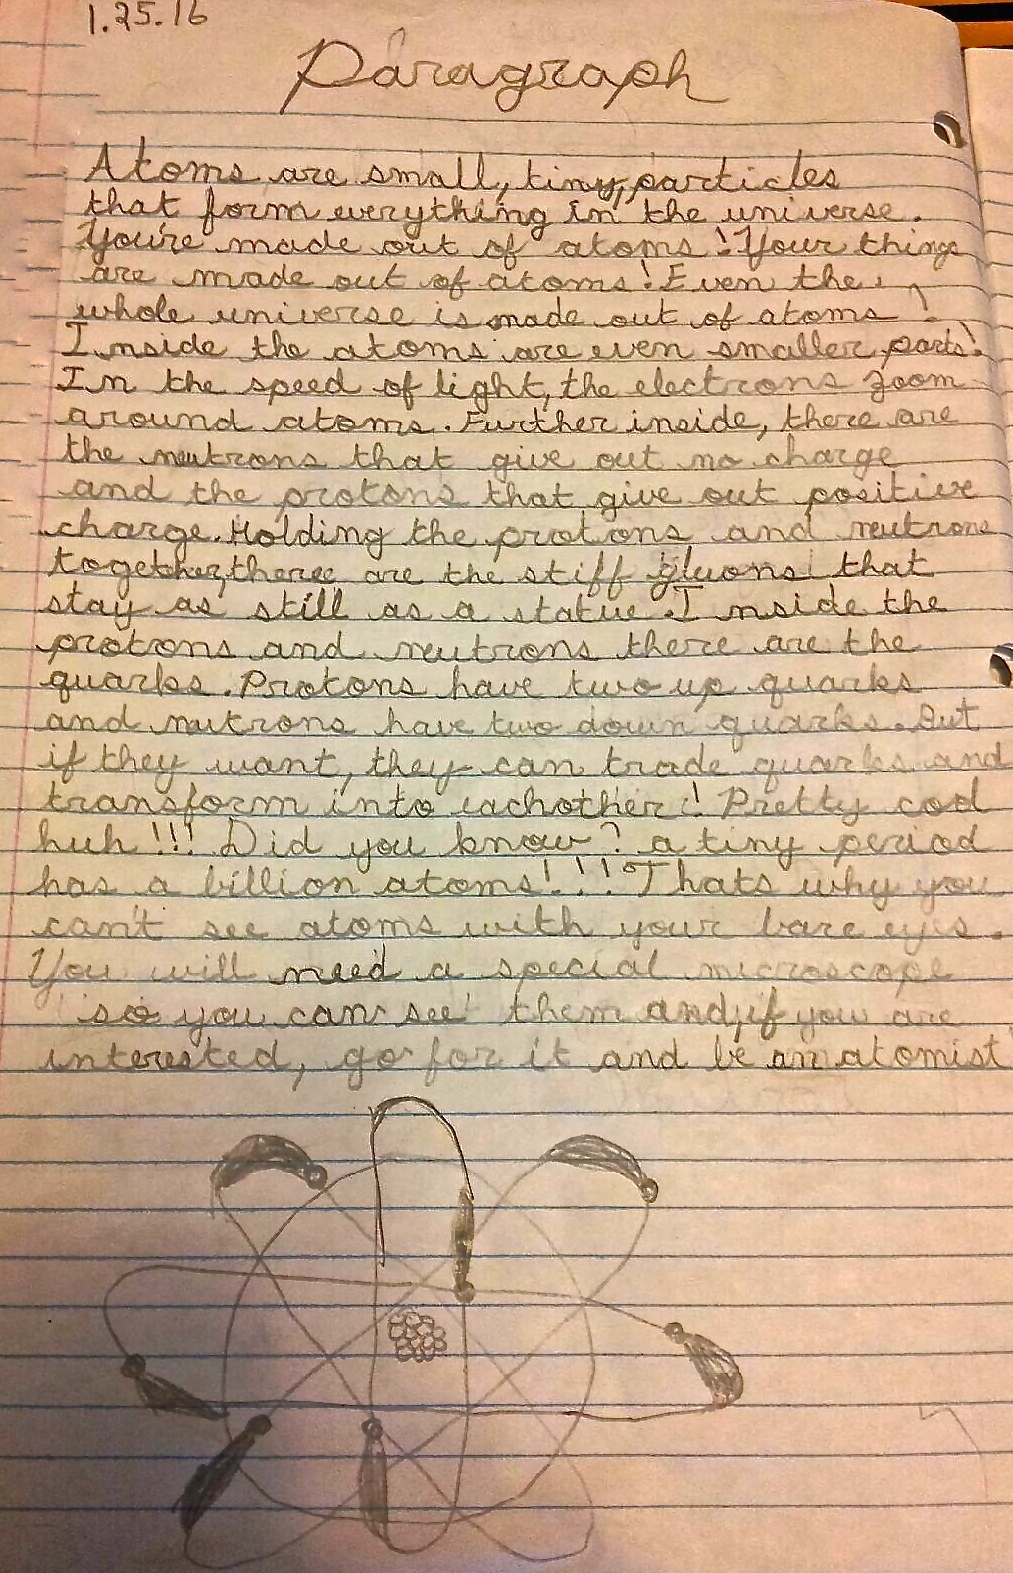 1.25.16
Paragraph
Atoms are small, tiny, particles
that form everything in the universe.
You're made out of atoms! Your things
are made out of atoms! Even the
whole universe is made out of atoms!
Inside the atoms are even smaller parts!
In the speed of light, the electrons zoom
around atoms. Further inside, there are
the neutrons that give out no charge
and the protons that give out positive
charge. Holding the protons and neutrons
together, there are the stiff gluons that
stay as still as a statue. Inside the
protons and neutrons there are the
quarks. Protons have two up quarks
and nutrons have two down quarks. But
if they want, they can trade quarks and
transform into eachother! Pretty cool
huh!!! Did you know? a tiny period
has a billion atoms!!!! Thats why you
can't see atoms with your bare eyes.
You will need a special microscope
so you can see them and, if you are
interested, go for it and be an atomist